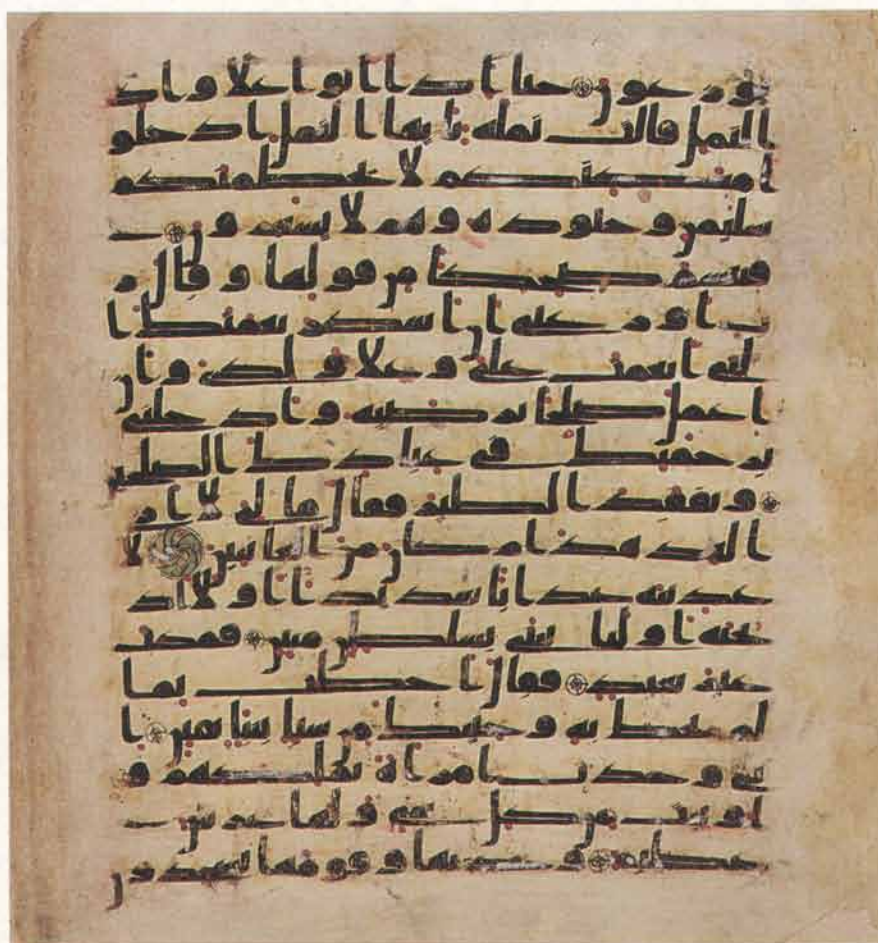 يوزعون حتا اذا اتوا علا واد
النمل قالت نملة يايها النمل ادخلو
ا مسكنكم لا يحطمنكم
سليمن وجنوده وهم لا يشعرون
فتبسم ضحكا من قولها وقال ر
ب اوزعني ان اشكر نعمتك ا
لتي انعمت علي وعلا ولدي وان
اعمل صلحا ترضيه وادخلني
برحمتك في عبادك الصلحين
وتفقد الطير فقال ما لي لا ار
ا الهدهد ام كان من الغابين لا
عذبنه عذابا شديدا او لااذ
بحنه او ليا تيني بسلطن مبين فمكث
غير بعيد فقال احطت بما
لم تحط به وجيتك من سبا بنبا يقين ا
ني وجدت امراة تملكهم و
اوتيت من كل شي ولها عرش
عظيم وجدتها وقومها يسجدون